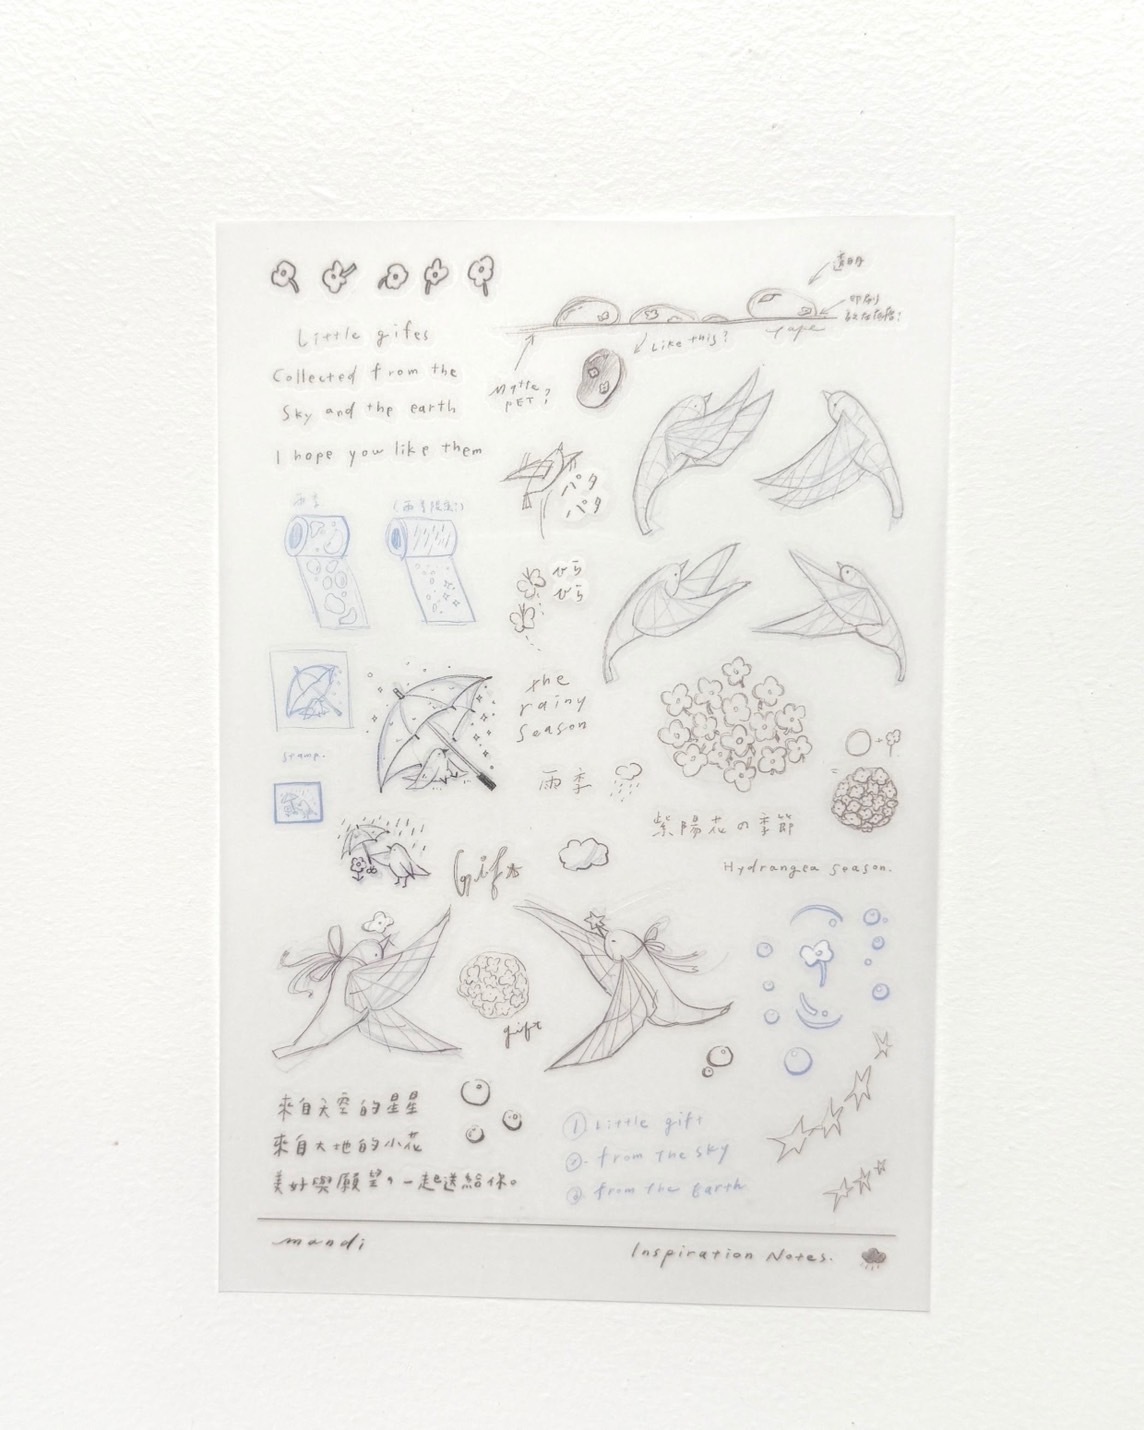 透明
印刷
Tape
Like this?
Matte
PET?
Little gifes
Collected from the
Sky and the earth
I hope you like them
パタ
パタ
雨季
ひら
ひら
the
rainy
Season
stamp.
雨季
紫陽花の季節
Hydrangea season.
Gift
gift
來自天空的星星
來自大地的小花
美好與願望,一起送給你。
① Little gift
②. from the sky
③ from the Earth
mandi
Inspiration Notes.